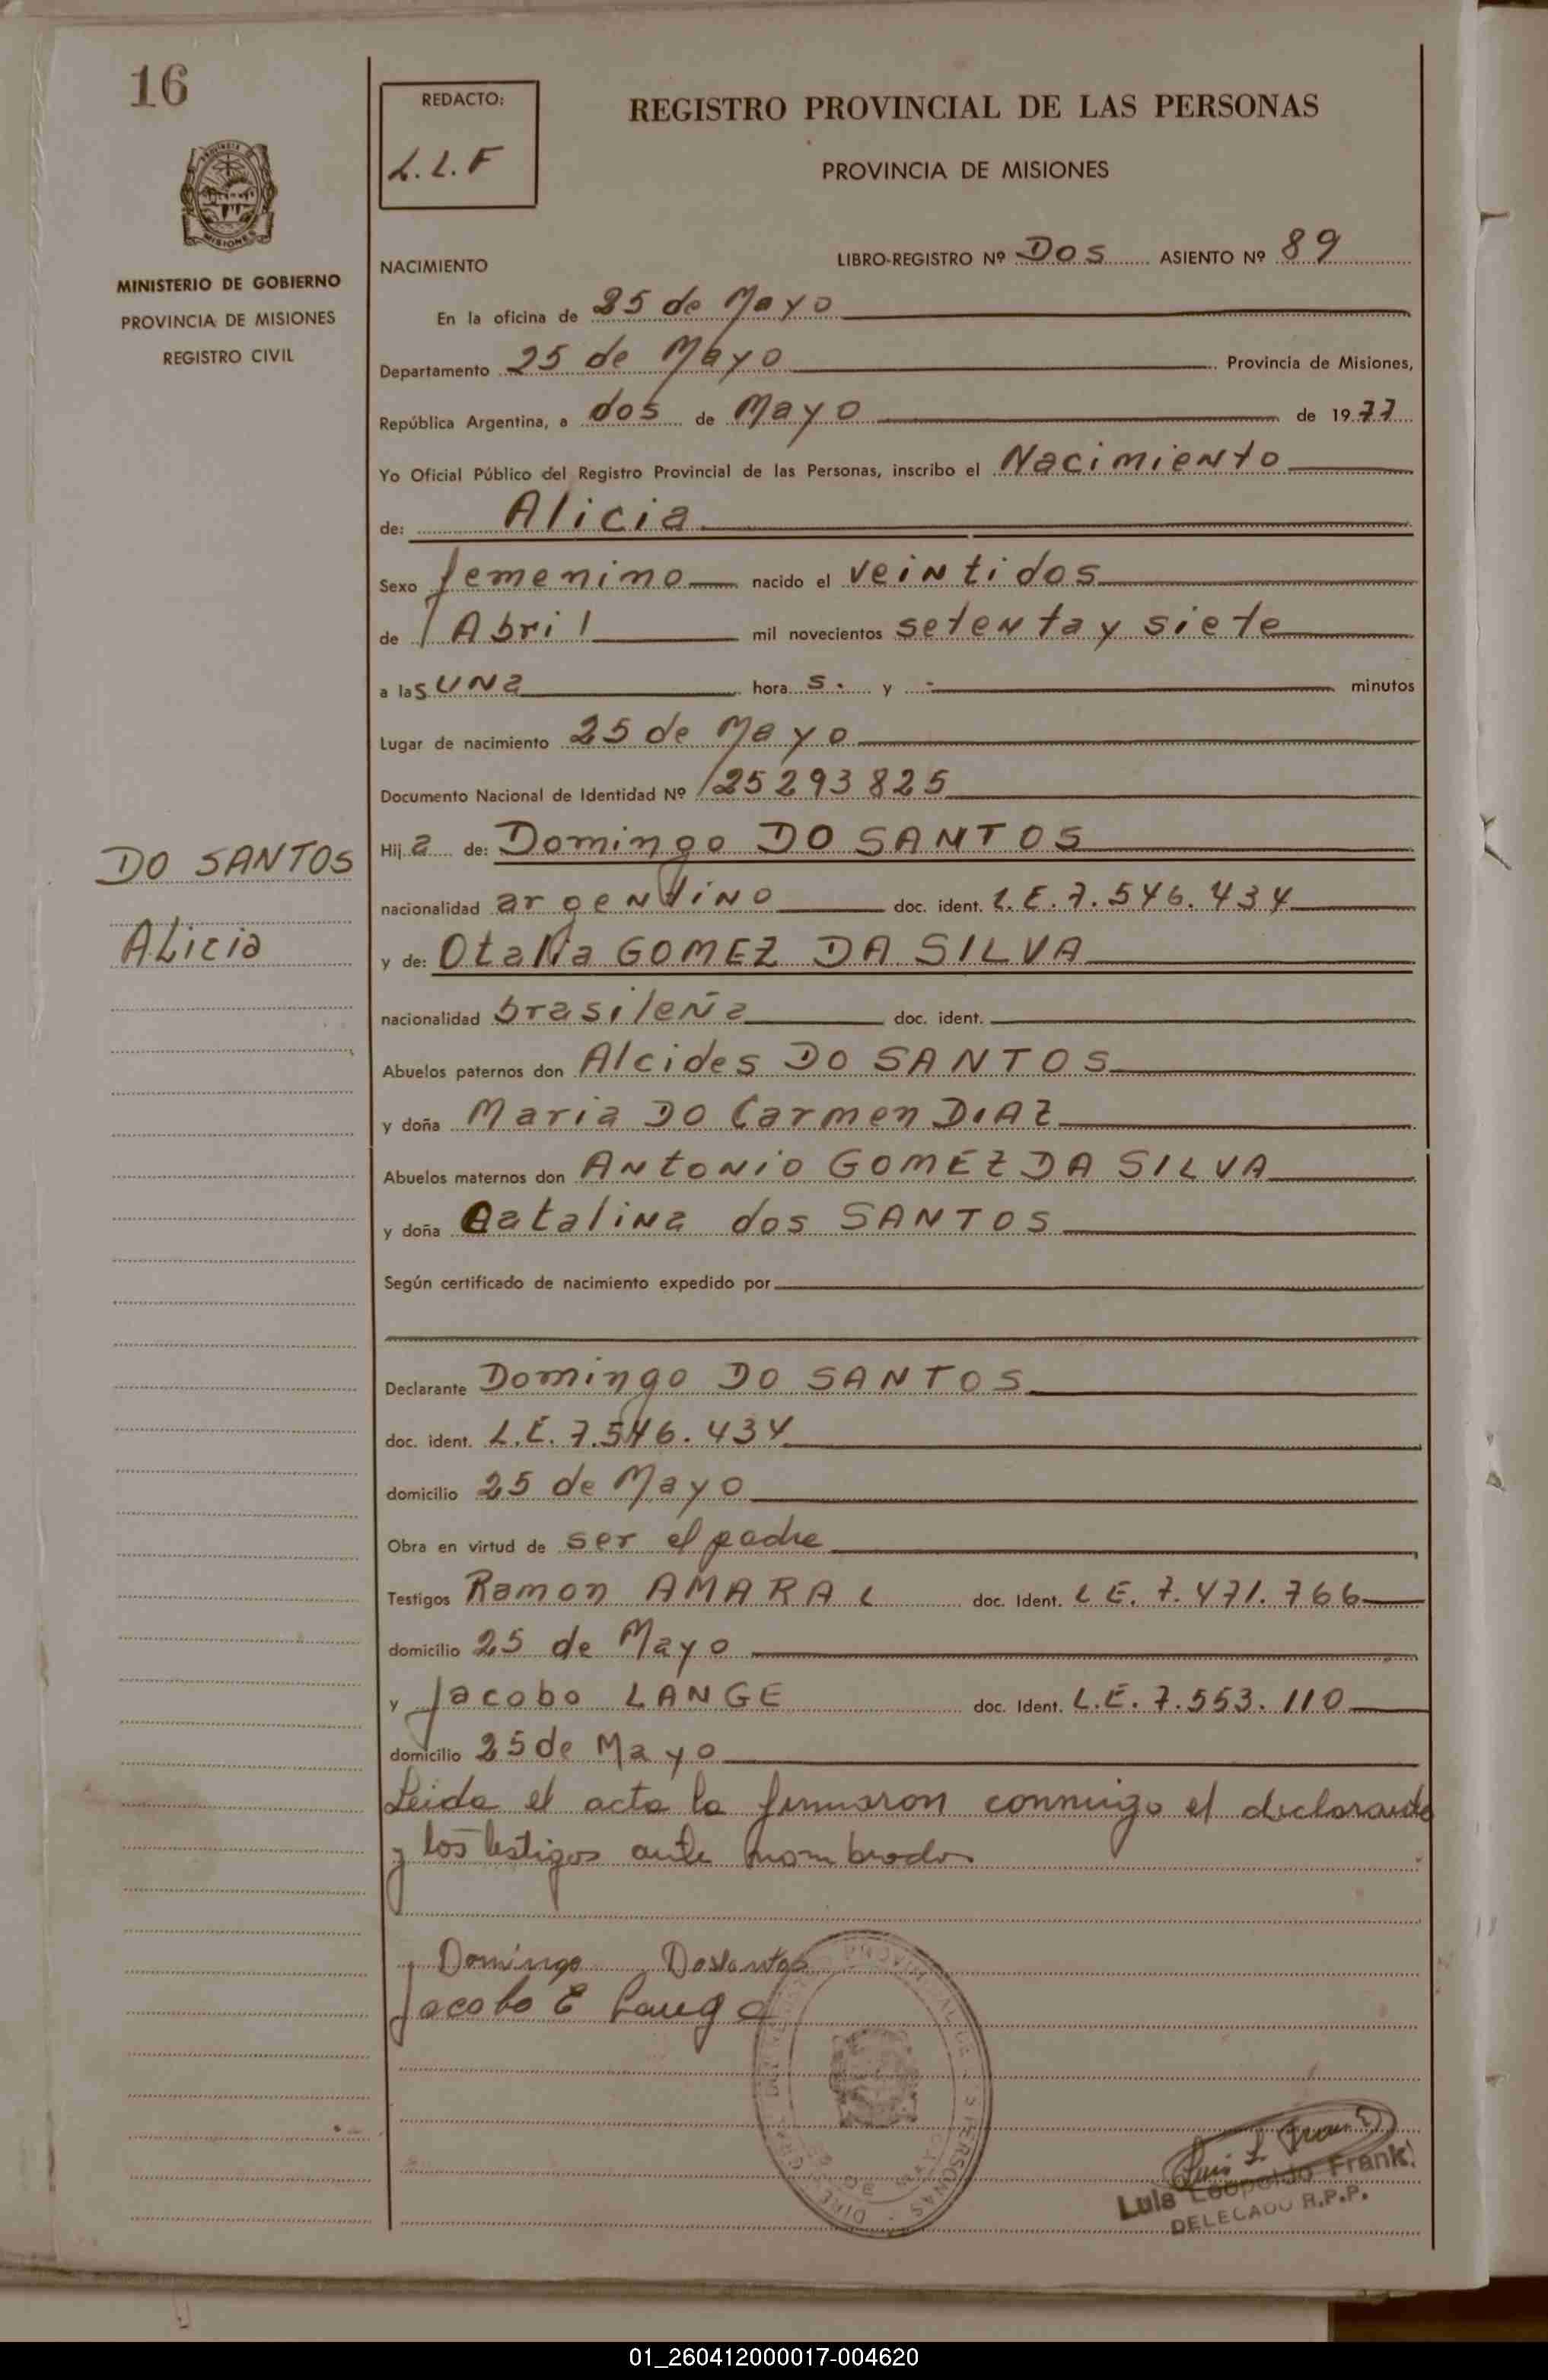 16
REDACTO:
L.L.F
REGISTRO PROVINCIAL DE LAS PERSONAS
PROVINCIA DE MISIONES
MISIONES
MINISTERIO DE GOBIERNO
PROVINCIA DE MISIONES
REGISTRO CIVIL
NACIMIENTO
LIBRO-REGISTRO Nº Dos ASIENTO Nº 89
En la oficina de 25 de Mayo
Departamento 25 de Mayo Provincia de Misiones,
República Argentina, a dos de Mayo de 1977
Yo Oficial Público del Registro Provincial de las Personas, inscribo el Nacimiento
de: Alicia
Sexo femenino nacido el veintidos
de Abril mil novecientos setenta y siete
a las una hora s. y - minutos
Lugar de nacimiento 25 de Mayo
Documento Nacional de Identidad Nº 25293825
DO SANTOS
Alicia
Hija de: Domingo DO SANTOS
nacionalidad argentino doc. ident. L.E. 7.546.434
y de: Otalia GOMEZ DA SILVA
nacionalidad brasileña doc. ident.
Abuelos paternos don Alcides DO SANTOS
y doña Maria DO Carmen DIAZ
Abuelos maternos don Antonio GOMEZ DA SILVA
y doña Catalina dos SANTOS
Según certificado de nacimiento expedido por
Declarante Domingo DO SANTOS
doc. ident. L.E. 7.546.434
domicilio 25 de Mayo
Obra en virtud de ser el padre
Testigos Ramon AMARAL doc. Ident. L E. 7.471.766
domicilio 25 de Mayo
y Jacobo LANGE doc. Ident. L.E. 7.553.110
domicilio 25 de Mayo
Leida el acta la firmaron conmigo el declarante
y los testigos ante nombrados
Domingo Dosantos
Jacobo E Lange
Luis Leopoldo Frank
DELEGADO R.P.P.
01_260412000017-004620